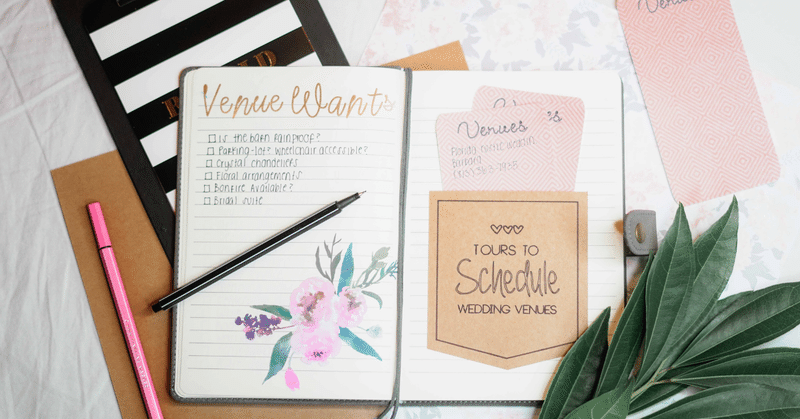 Venue Wants
Is the barn rainproof?
Parking-lot? Wheelchair accessible?
Crystal chandeliers
Floral arrangements
Bonfire Available?
Bridal suite
Venues
TOURS TO
Schedule
WEDDING VENUES